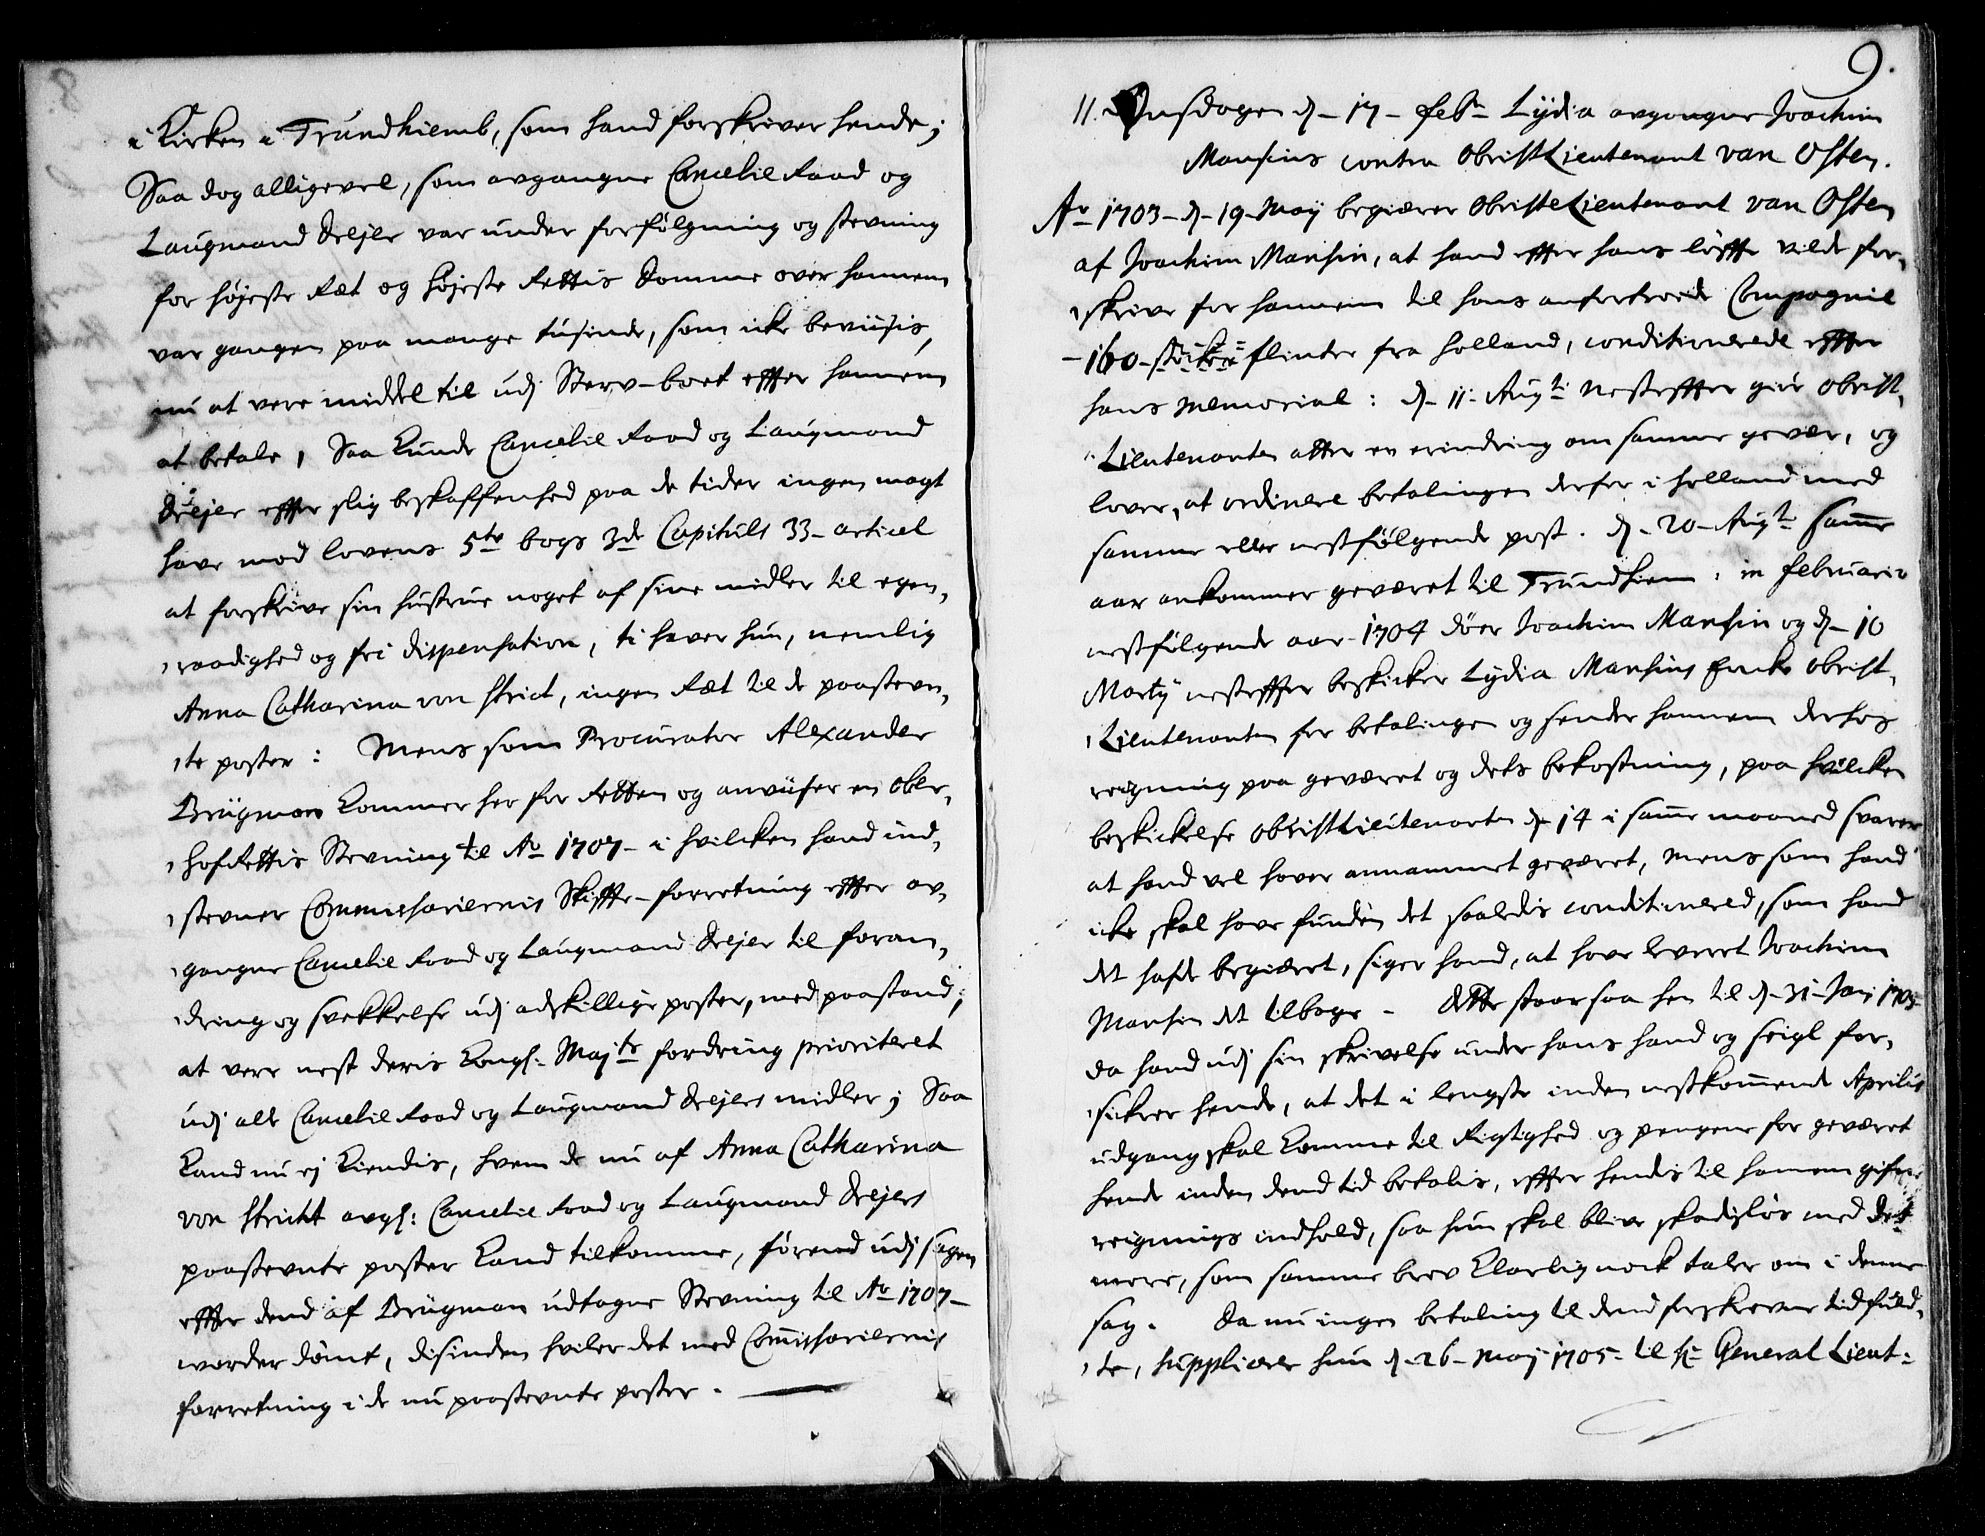 i Kirken i Trundhiemb, som hand forskriver hende;
Saa dog alligevel, som avgangne Cancelie Raad og
Laugmand Drejer var under forfølgning og stevning
for højeste Ræt og højeste Rettis Domme over hannem
var gangen paa mange tusinde, som icke beviisis,
nu at vere middel til udj Sterv-boet effter hannem
at betale, Saa kunde Cancelie Raad og Laugmand
Drejer effter slig beskaffenhed paa de tider ingen magt
have mod lovens 5te bogs 3de Capituls 33- articel
at forskrive sin hustrue noget af sine midler til egen,
,raadighed og fri dispensation, ti haver hun, nemlig
Anna Catharina von Strict, ingen Ræt til de paastevn,
,te poster: Mens som Procurator Alexander
Brügman kommer her for Retten og anviiser en Ober,
,hofRettis Stevning til Ao 1707- i hvilcken hand ind,
,stevner Commissariernis Skiffte-forretning effter av,
,gangne Cancelie Raad og Laugmand Drejer til foran,
,dring og svekkelse udj adskillige poster, med paastand;
at vere nest deris Kongl: Majts fordring prioriteret
udj alle Cancelie Raad og Laugmand Drejers midler; Saa
kand nu ej kiendis, hvem de nu af Anna Catharina
von Stricht avgl: Cancelie Raad og Laugmand Drejers
paastevnte poster kand tilkomme, førend udj sagen
effter dend af Brügman udtagne Stevning til Ao 1707-
worder dømt, disinden hviler det med Commissariernis
forretning i de nu paastevnte poster.
9.
11. Onsdagen d- 17- febr Lydia avgangne Joachim
Mansins contra ObristLieutenant van Osten.
Ao 1703- d- 19- Maij begiærer ObristeLieutenant van Osten
af Joachim Mansin, at hand effter hans løffte vilde for,
,skrive for hannem til hans anfortroede Compagnie
-160- stücker flinter fra Holland, conditionerede effter
hans memorial: d- 11- Augti nesteffter giør Obrist,
,Lieutenanten atter en erindring om samme gevær, og
lover, at ordinere betalingen derfor i Holland med
samme eller nestfølgende post. d- 20- Augti samme
aar ankommer geværet til Trundhiem: in februario
nestfølgende aar 1704 døer Joachim Mansin og d- 10
Martij nesteffter beskicker Lydia Mansins Encke Obrist,
,Lieutenanten for betalingen og sender hannem derhos
reigning paa geværet og dets bekostning, paa hvilcken
beskickelse ObristLieutenanten d- 14 i samme maaned svarer
at hand vel haver annammet geværet, mens som hand
icke skal have funden det saaledis conditionered, som hand
det hafde begiæret, siger hand, at have leveret Joachim
Mansin det tilbage. Dette staar saa hen til d- 31- Janj 1705-
da hand udj sin skrivelse under hans hand og seigl for,
,sickrer hende, at det i lengste inden nestkommende Aprilis
udgang skal komme til Rigtighed og pengene for geværet
hende inden dend tid betalis, effter hendis til hannem gifne
reignings indhold, saa hun skal blive skadisløs med det
mere, som samme brev klarlig nock taler om i denne
sag. Da nu ingen betaling til dend forskrevne tid fuld,
,te, supplicerer hun d- 26- Maj 1705- til Hr General Lieut: